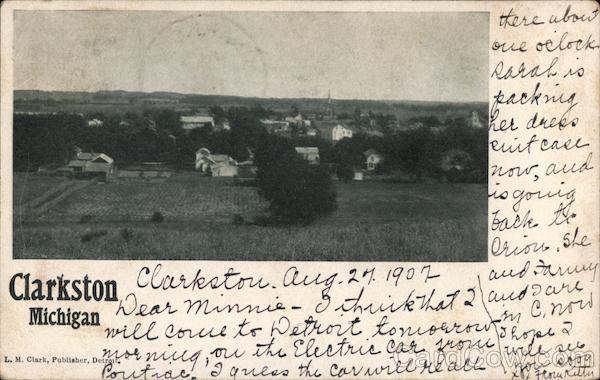 Clarkston
Michigan
L. M. Clark, Publisher, Detroit.
Clarkston. Aug. 27. 1907
Dear Minnie - I think that I
will come to Detroit tomorrow
morning, on the Electric car from
Pontiac. I guess the car will reach
there about
one oclock
Sarah is
packing
her dress
suit case
now, and
is going
back to
Orion. She
and Fanny
and I are
in C, now
I hope I
will see
you
CardCow.com